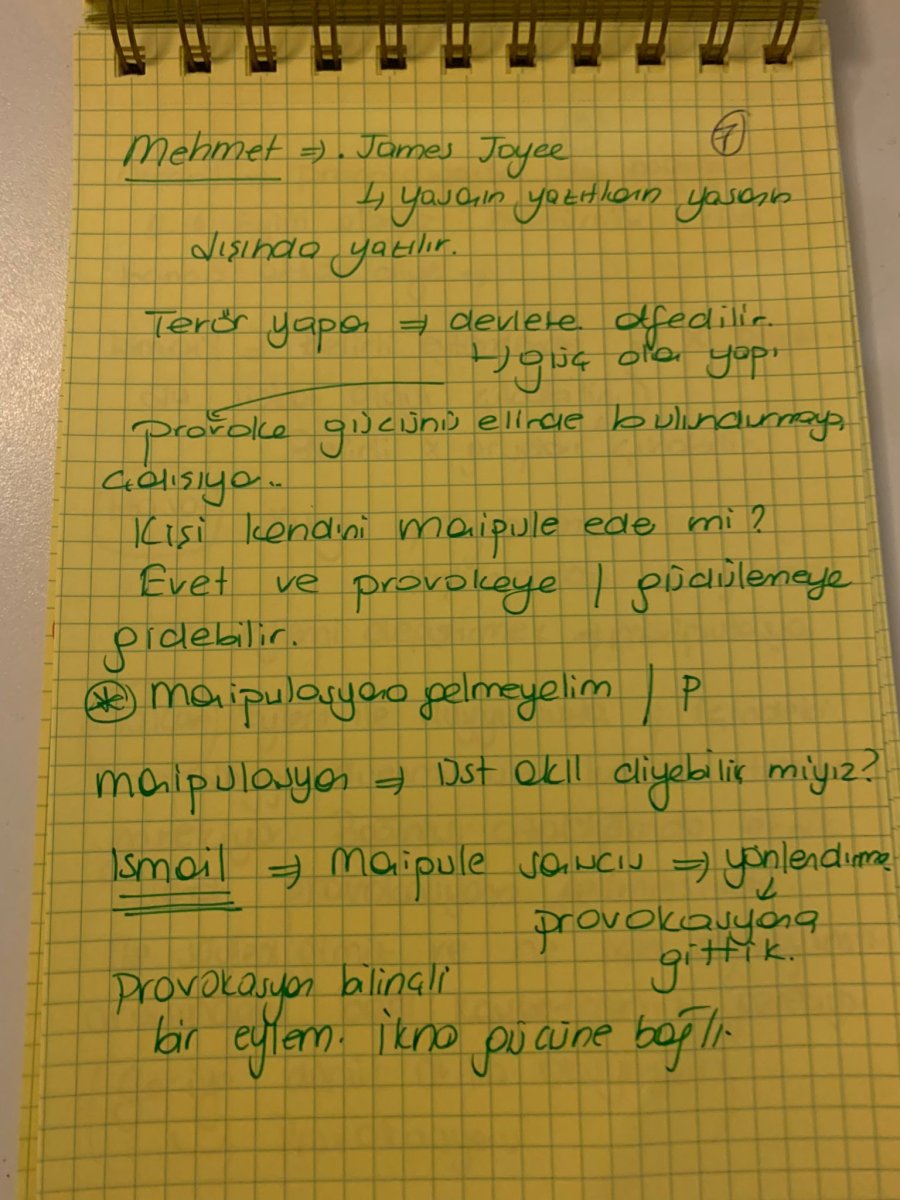 Mehmet ⇒ . James Joyce ⑦
↳ yasanın yazıtların yasanın
dışında yazılır.
Terör yapan ⇒ devlete atfedilir.
↳ güç olan yapı
provoke gücünü elinde bulundurmaya
çalışıyo..
Kişi kendini maipule ede mi?
Evet ve provokeye / güdülemeye
gidebilir.
* Manipulasyona gelmeyelim / P
Manipulasyon ⇒ üst akıl diyebilir miyiz?
İsmail ⇒ Manipule ⇒ yönlendirme
↓
provokasyona
gittik.
Provokasyon bilinçli
bir eylem. İkna gücüne bağlı.